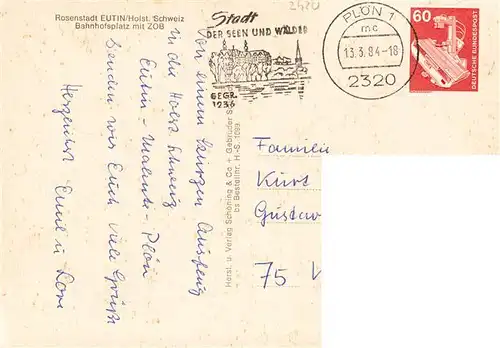 Rosenstadt EUTIN/Holst. Schweiz
Bahnhofsplatz mit ZOB
Von einem kurzen Ausflug
in die Holst. Schweiz
Eutin - Malente - Plön
senden wir Euch viele Grüße
Herzlichst Emmi u. Lori
Stadt
DER SEEN UND WÄLDER
GEGR.
1236
PLÖN 1
mc
13.3.84-18
2320
60
DEUTSCHE BUNDESPOST
Herst. u. Verlag Schöning & Co + Gebrüder S
bs Bestellnr. H.-S. 1099
Familie
Kurt
Gustav
75